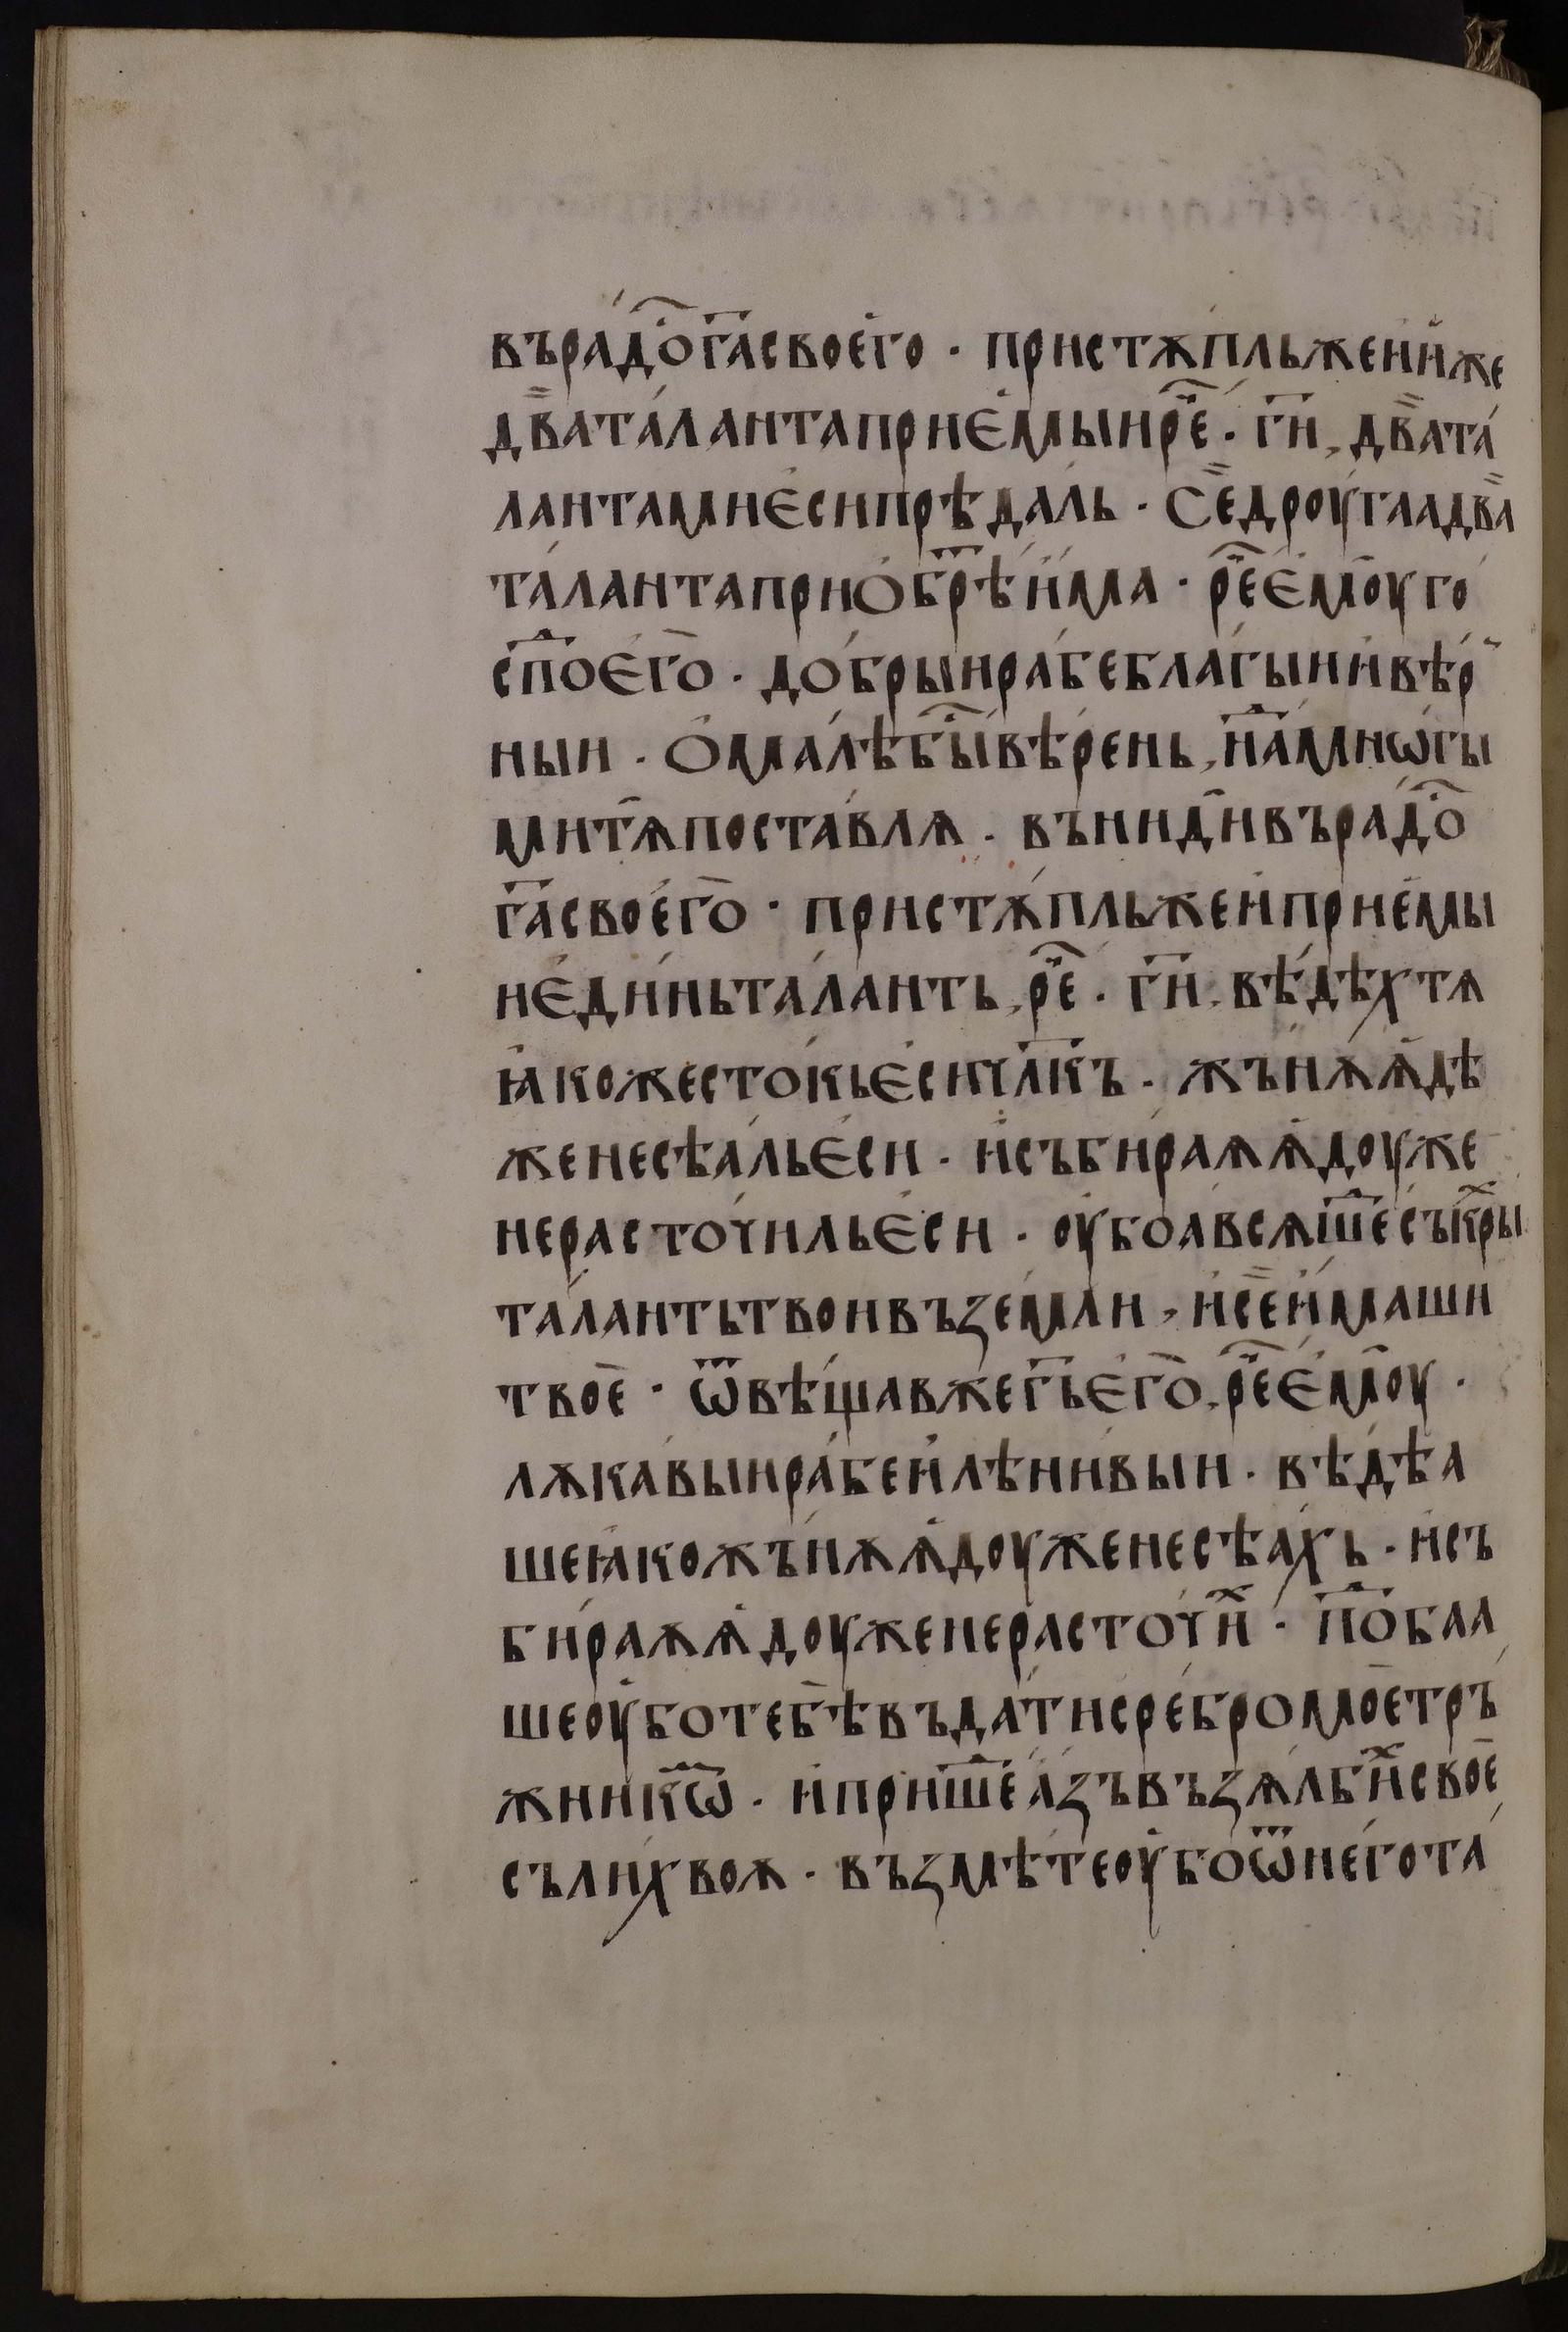 въра́дⷭ҇ог҃а своего · пристѫ́пль же и҆и҆же
два̀ тала́нта прие́мыи ре҇ч · г҃и, два̀ та́
ланта ми є҆си прѣ́даль · Се̏ дроу́гаа два̏
та́ланта прио҆брⷮѣ́ и҆ма · реⷱ҇ є҆моу̀ го́
спⷣо є҆го̀ · до́брыи ра́бе бла́гыи и҆вѣ́р
ныи · о҆ ма́лѣ бы́ⷭ вѣ́рень, наⷣ мнѡ́гы
ми тѧ̀ поста́влѧ · въниди̇̀ въ ра́дⷭ҇о
г҃а свое́го̀ · пристѫ́пль же и҆ прие́мы
и є҆ди́нь тала́нть, реⷱ҇ · г҃и, вѣ́дѣх тѧ
ꙗ҆ко жесто́кь є҆си ч҃лкъ · жънѫ ѧ҆дѣ
же не сѣ́аль є҆си · и҆събираѫ ѧ҆доу́же
не расто́чиль є҆си · оу҆боа́в сѧ шеⷣ съкрыⷯ
тала́нть твои въ земли, и҆ се̏ и҆́маши
твоѐ · ѿвѣ́щав же г҃ь є҆го̀, реⷱ҇ є҆моу̀ ·
лѫка́выи ра́бе и҆ лѣни́выи · вѣ́дѣа
ше ꙗ҆ко жъ́нѫ ѧ҆доу́же не сѣ́ахь · и҆съ
бира́ѫ ѧ҆доу́же не расточиⷯ · поⷣбаа
ше оу҆бо тебѣ̀ въда́ти сре́бро моѐ тръ́
жникѡⷨ · и҆ пришеⷣ а҆́зъ възѧ́ль биⷯ своѐ
съ ли́хвоѫ · възмѣ́те оу҆бо ѿ него та́